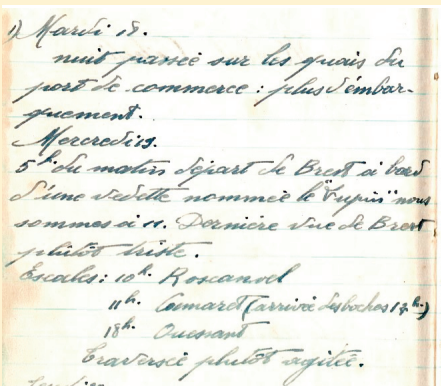 1) Mardi 18.
nuit passée sur les quais du
port de commerce : plus d'embar-
quement.
Mercredi 19.
5h du matin départ de Brest à bord
d'une vedette nommée le "Tupin" nous
sommes à 11. Dernière vue de Brest
plutôt triste.
Escales : 10h. Roscanvel
11h. Camaret (arrivée des boches 12h.)
18h. Ouessant
Traversée plutôt agitée.